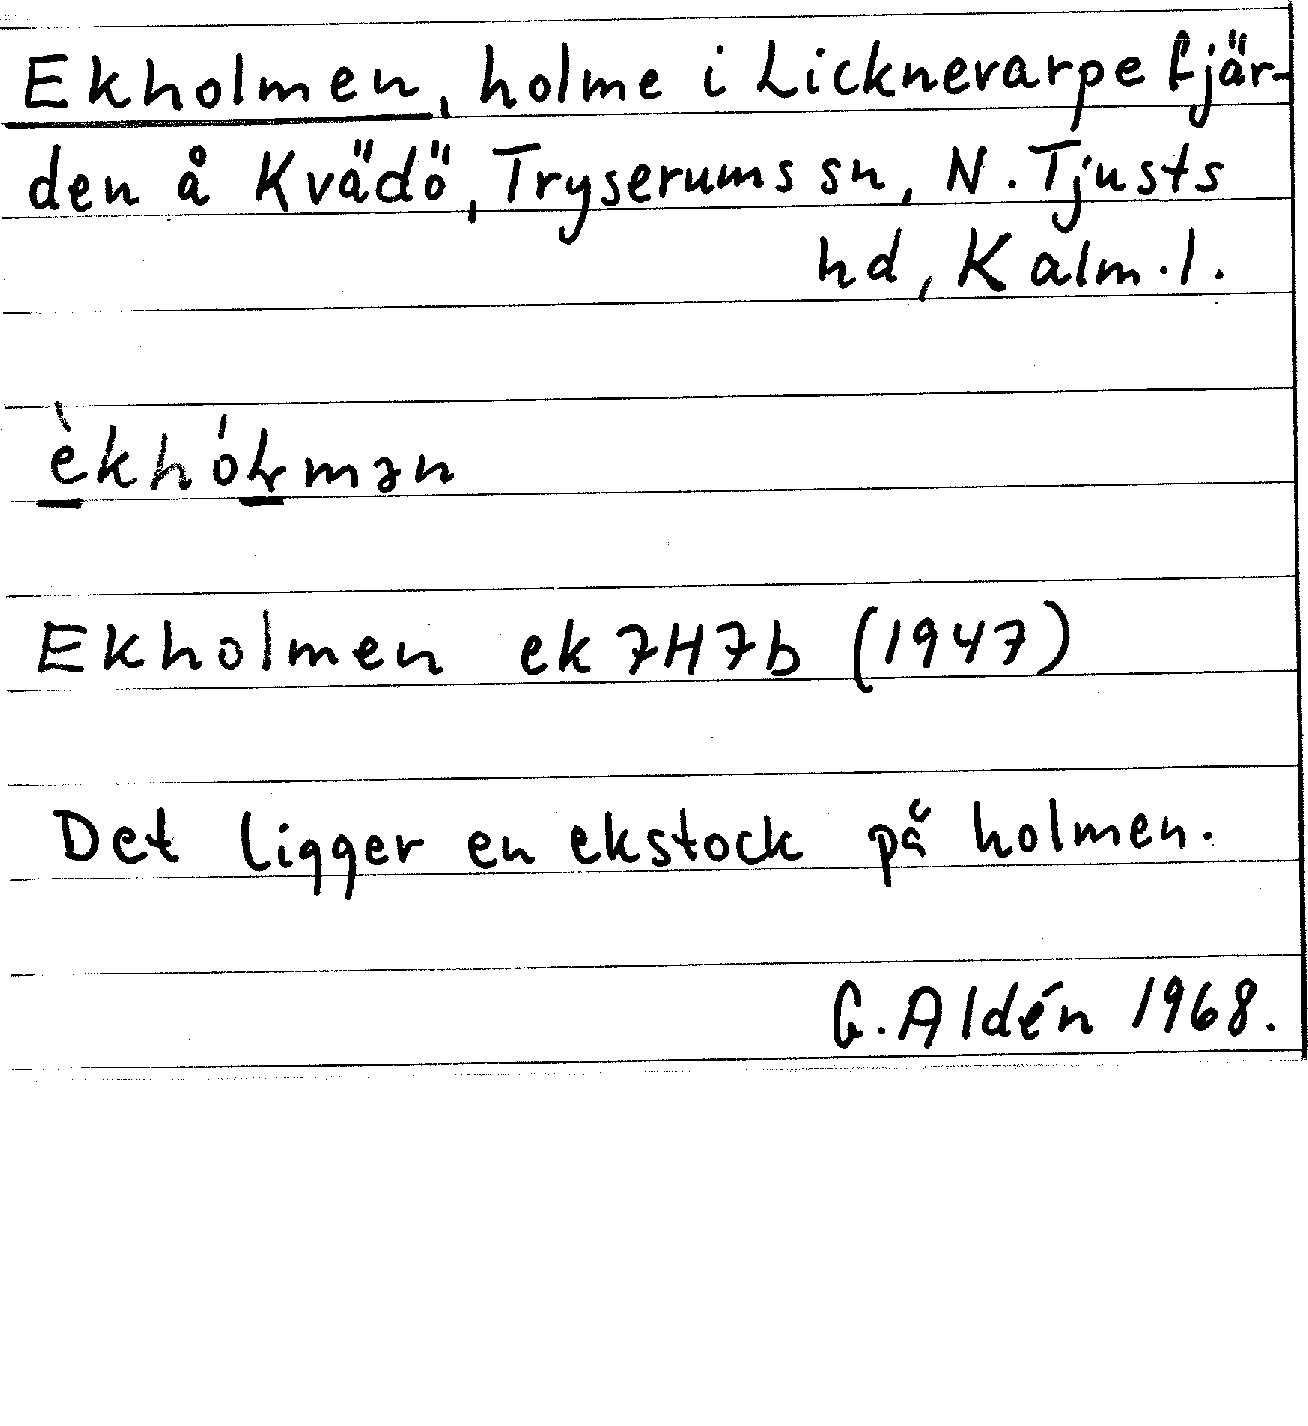 Ekholmen, holme i Licknevarpefjär-
den å Kvädö, Tryserums sn, N. Tjusts
hd, Kalm. l.
Ekholmen ek 7H7b (1947)
Det ligger en ekstock på holmen.
G. Aldén 1968.